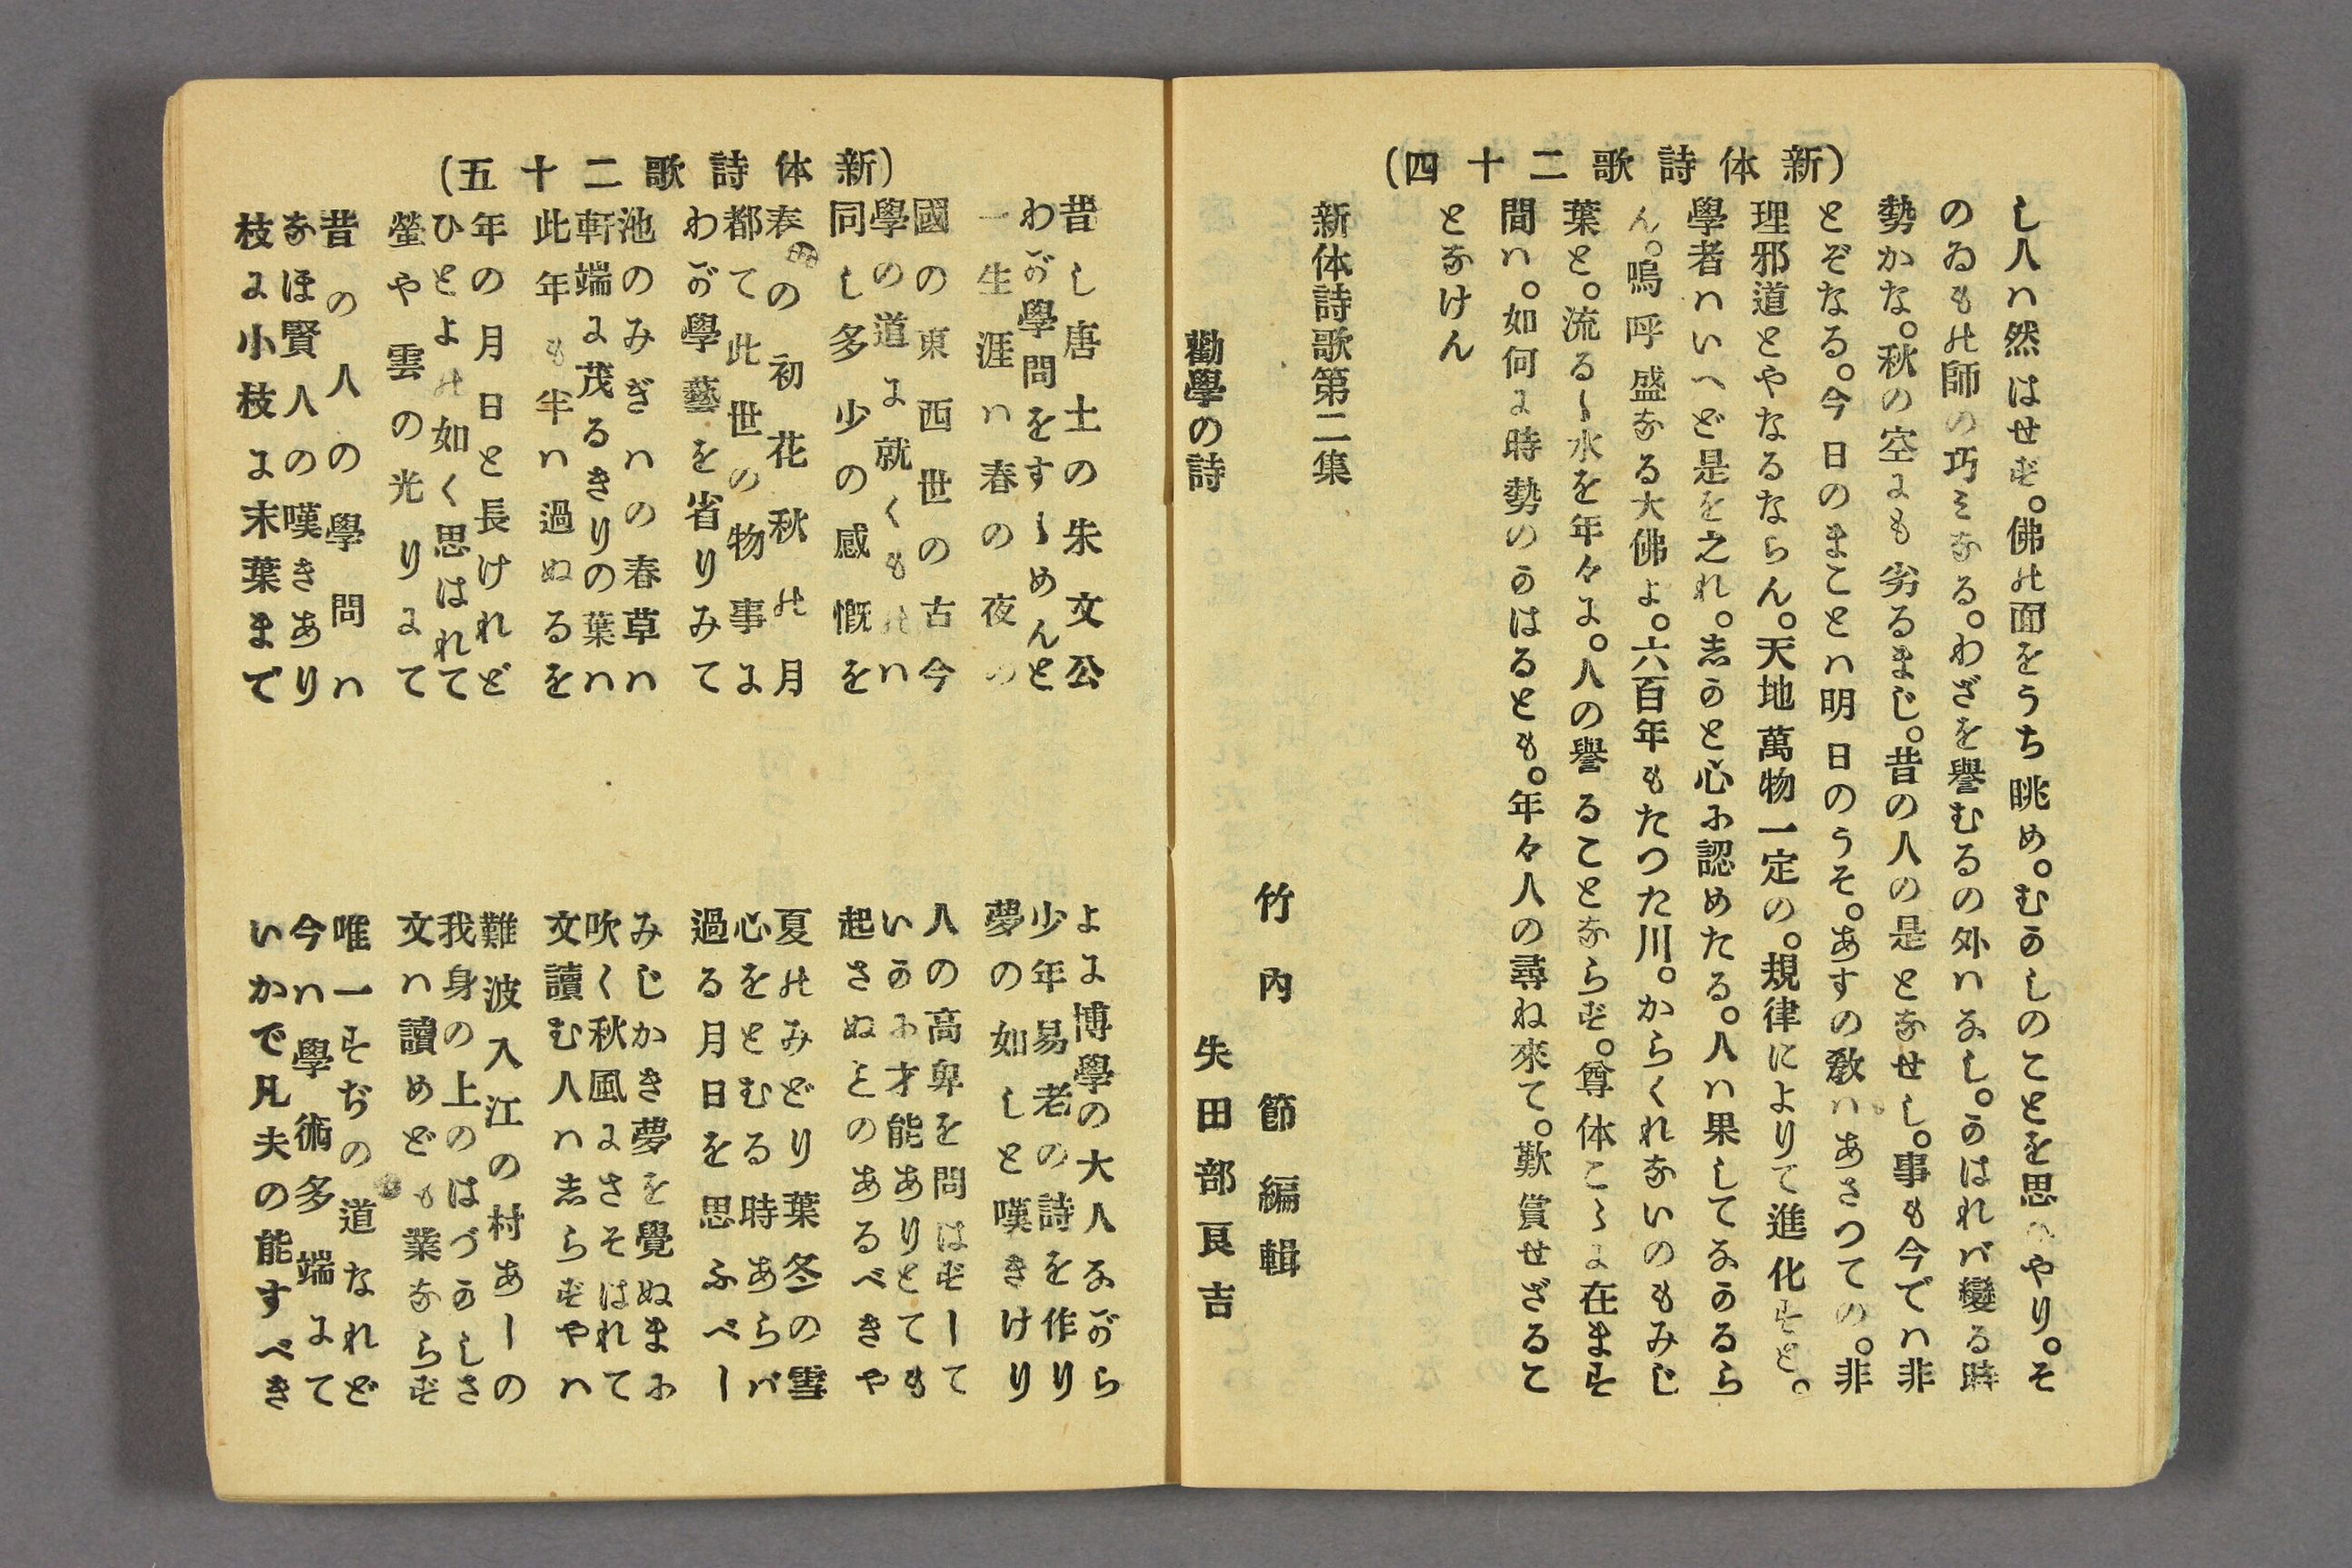 (新体詩歌二十四)
し人ハ然はせず。佛の面をうち眺め。むかしのことを思ひやり。そ
のゐもの師の巧ミなる。わざを譽むるの外ハなし。かはれバ變る時
勢かな。秋の空にも劣るまじ。昔の人の是となせし。事も今でハ非
とぞなる。今日のまことハ明日のうそ。あすの敎ハあさつての。非
理邪道とやなるならん。天地萬物一定の。規律によりて進化すと。
學者ハいへど是を之れ。志かと心に認めたる。人ハ果してなかるら
ん。嗚呼盛なる大佛よ。六百年もたつた川。からくれないのもみじ
葉と。流るゝ水を年々に。人の譽ることならず。尊体こゝに在ます
間ハ。如何に時勢のかはるとも。年々人の尋ね來て。歎賞せざるこ
となけん
新体詩歌第二集
竹内節編輯
勸學の詩 矢田部良吉
(新体詩歌二十五)
昔し唐土の朱文公 よに博學の大人ながら
わが學問をすゝめんと 少年易老の詩を作り
一生涯ハ春の夜の 夢の如しと嘆きけり
國の東西世の古今 人の高卑を問はずして
學の道に就くものハ いかに才能ありとても
同し多少の感慨を 起さぬとのあるべきや
春の初花秋の月 夏のみどり葉冬の雪
都て此世の物事に 心をとむる時あらバ
わが學藝を省りみて 過る月日を思ふべし
池のみぎハの春草ハ みじかき夢を覺ぬまに
軒端に茂るきりの葉ハ 吹く秋風にさそはれて
此年も半ハ過ぬるを 文讀む人ハ志らずやハ
年の月日と長けれど 難波入江の村あしの
ひとよの如く思はれて 我身の上のはづかしさ
螢や雲の光りにて 文ハ讀めども業ならず
昔の人の學問ハ 唯一すぢの道なれど
なほ賢人の嘆きあり 今ハ學術多端にて
枝に小枝に末葉まで いかで凡夫の能すべき